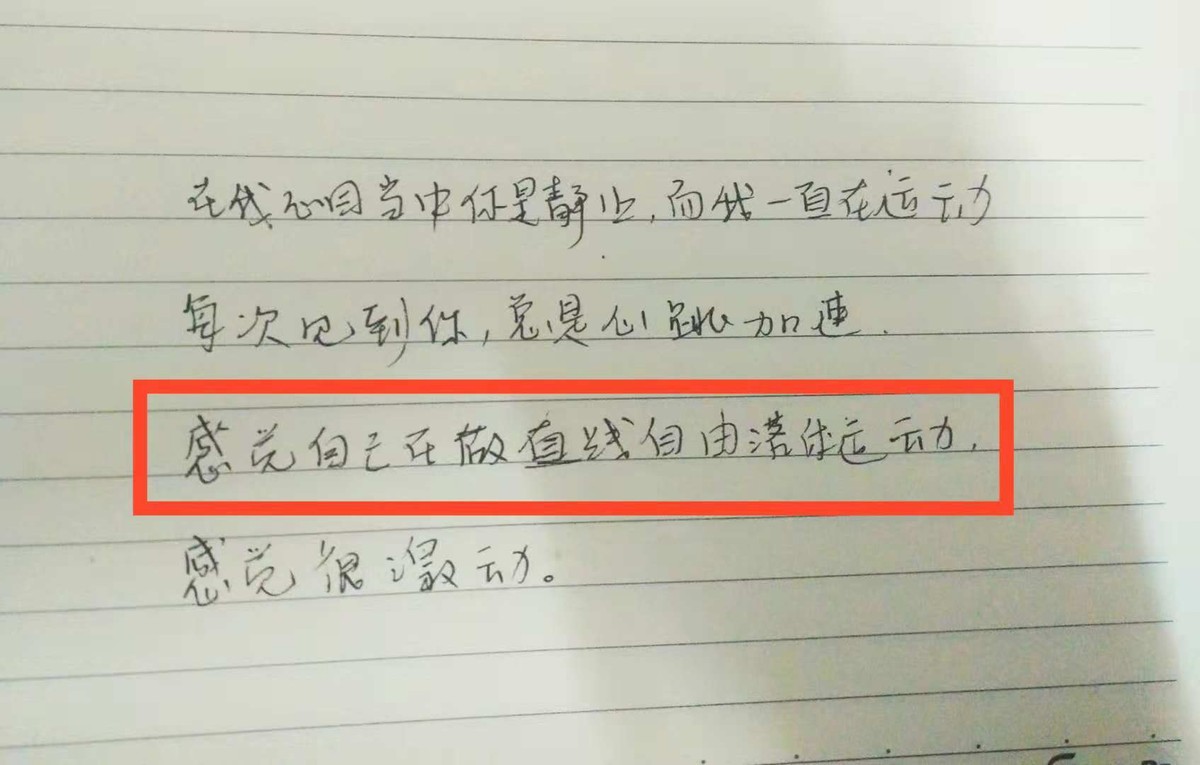 在我心目当中你是静止,而我一直在运动
每次见到你,总是心跳加速.
感觉自己在做直线自由落体运动,
感觉很激动。